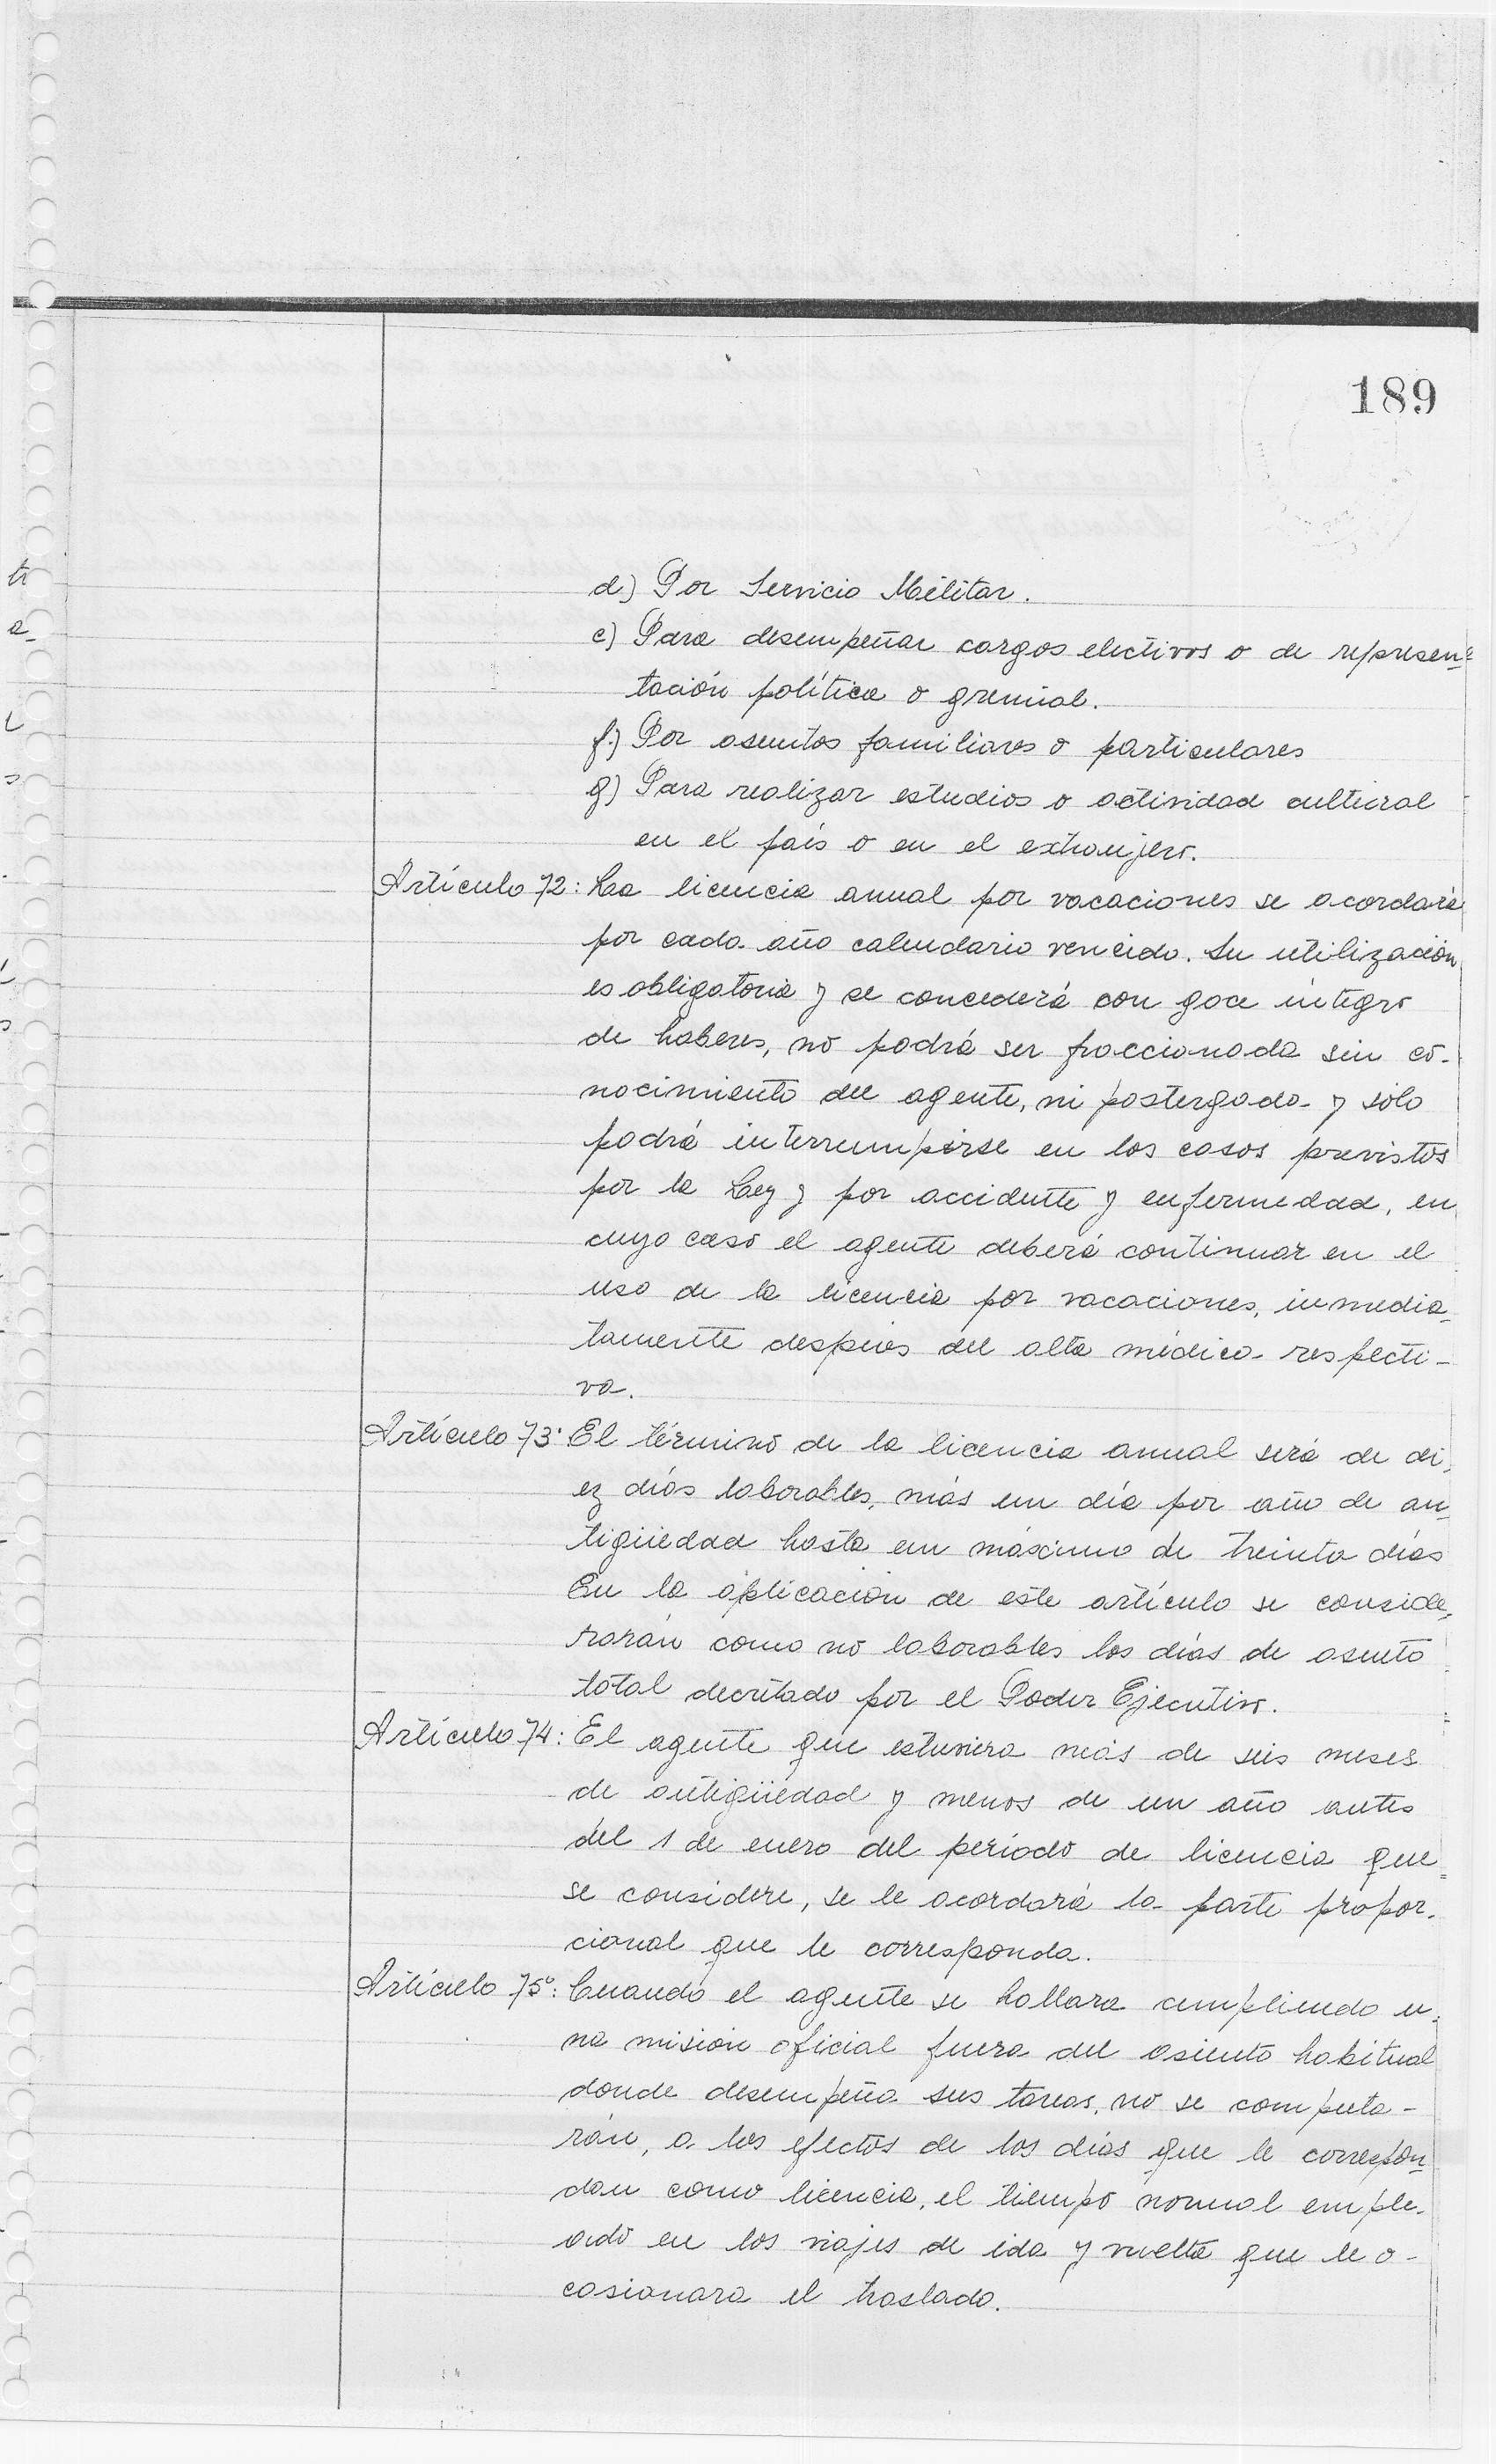 189
d) Por Servicio Militar.
e) Para desempeñar cargos electivos o de represen=
tación política o gremial.
f) Por asuntos familiares o particulares
g) Para realizar estudios o actividad cultural
en el país o en el extranjero.
Artículo 72: La licencia anual por vacaciones se acordará
por cada año calendario vencido. Su utilización
es obligatoria y se concederá con goce íntegro
de haberes, no podrá ser fraccionada sin co-
nocimiento del agente, ni postergada y sólo
podrá interrumpirse en los casos previstos
por la Ley y por accidente y enfermedad, en
cuyo caso el agente deberá continuar en el
uso de la licencia por vacaciones, inmedia-
tamente despúes del alta médica respecti-
va.
Artículo 73: El término de la licencia anual será de di-
ez días laborables, más un día por año de an-
tigüedad hasta un máximo de treinta días
En la aplicación de este artículo se conside-
rarán como no laborables los días de asueto
total decretado por el Poder Ejecutivo.
Artículo 74: El agente que estuviera más de seis meses
de antigüedad y menos de un año antes
del 1 de enero del período de licencia que
se considere, se le acordará la parte propor-
cional que le corresponda.
Artículo 75º: Cuando el agente se hallara cumpliendo u-
na misión oficial fuera del asiento habitual
donde desempeña sus tareas, no se computa-
rán, a los efectos de los días que le correspon-
dan como licencia, el tiempo normal emple-
ado en los viajes de ida y vuelta que le o-
casionara el traslado.